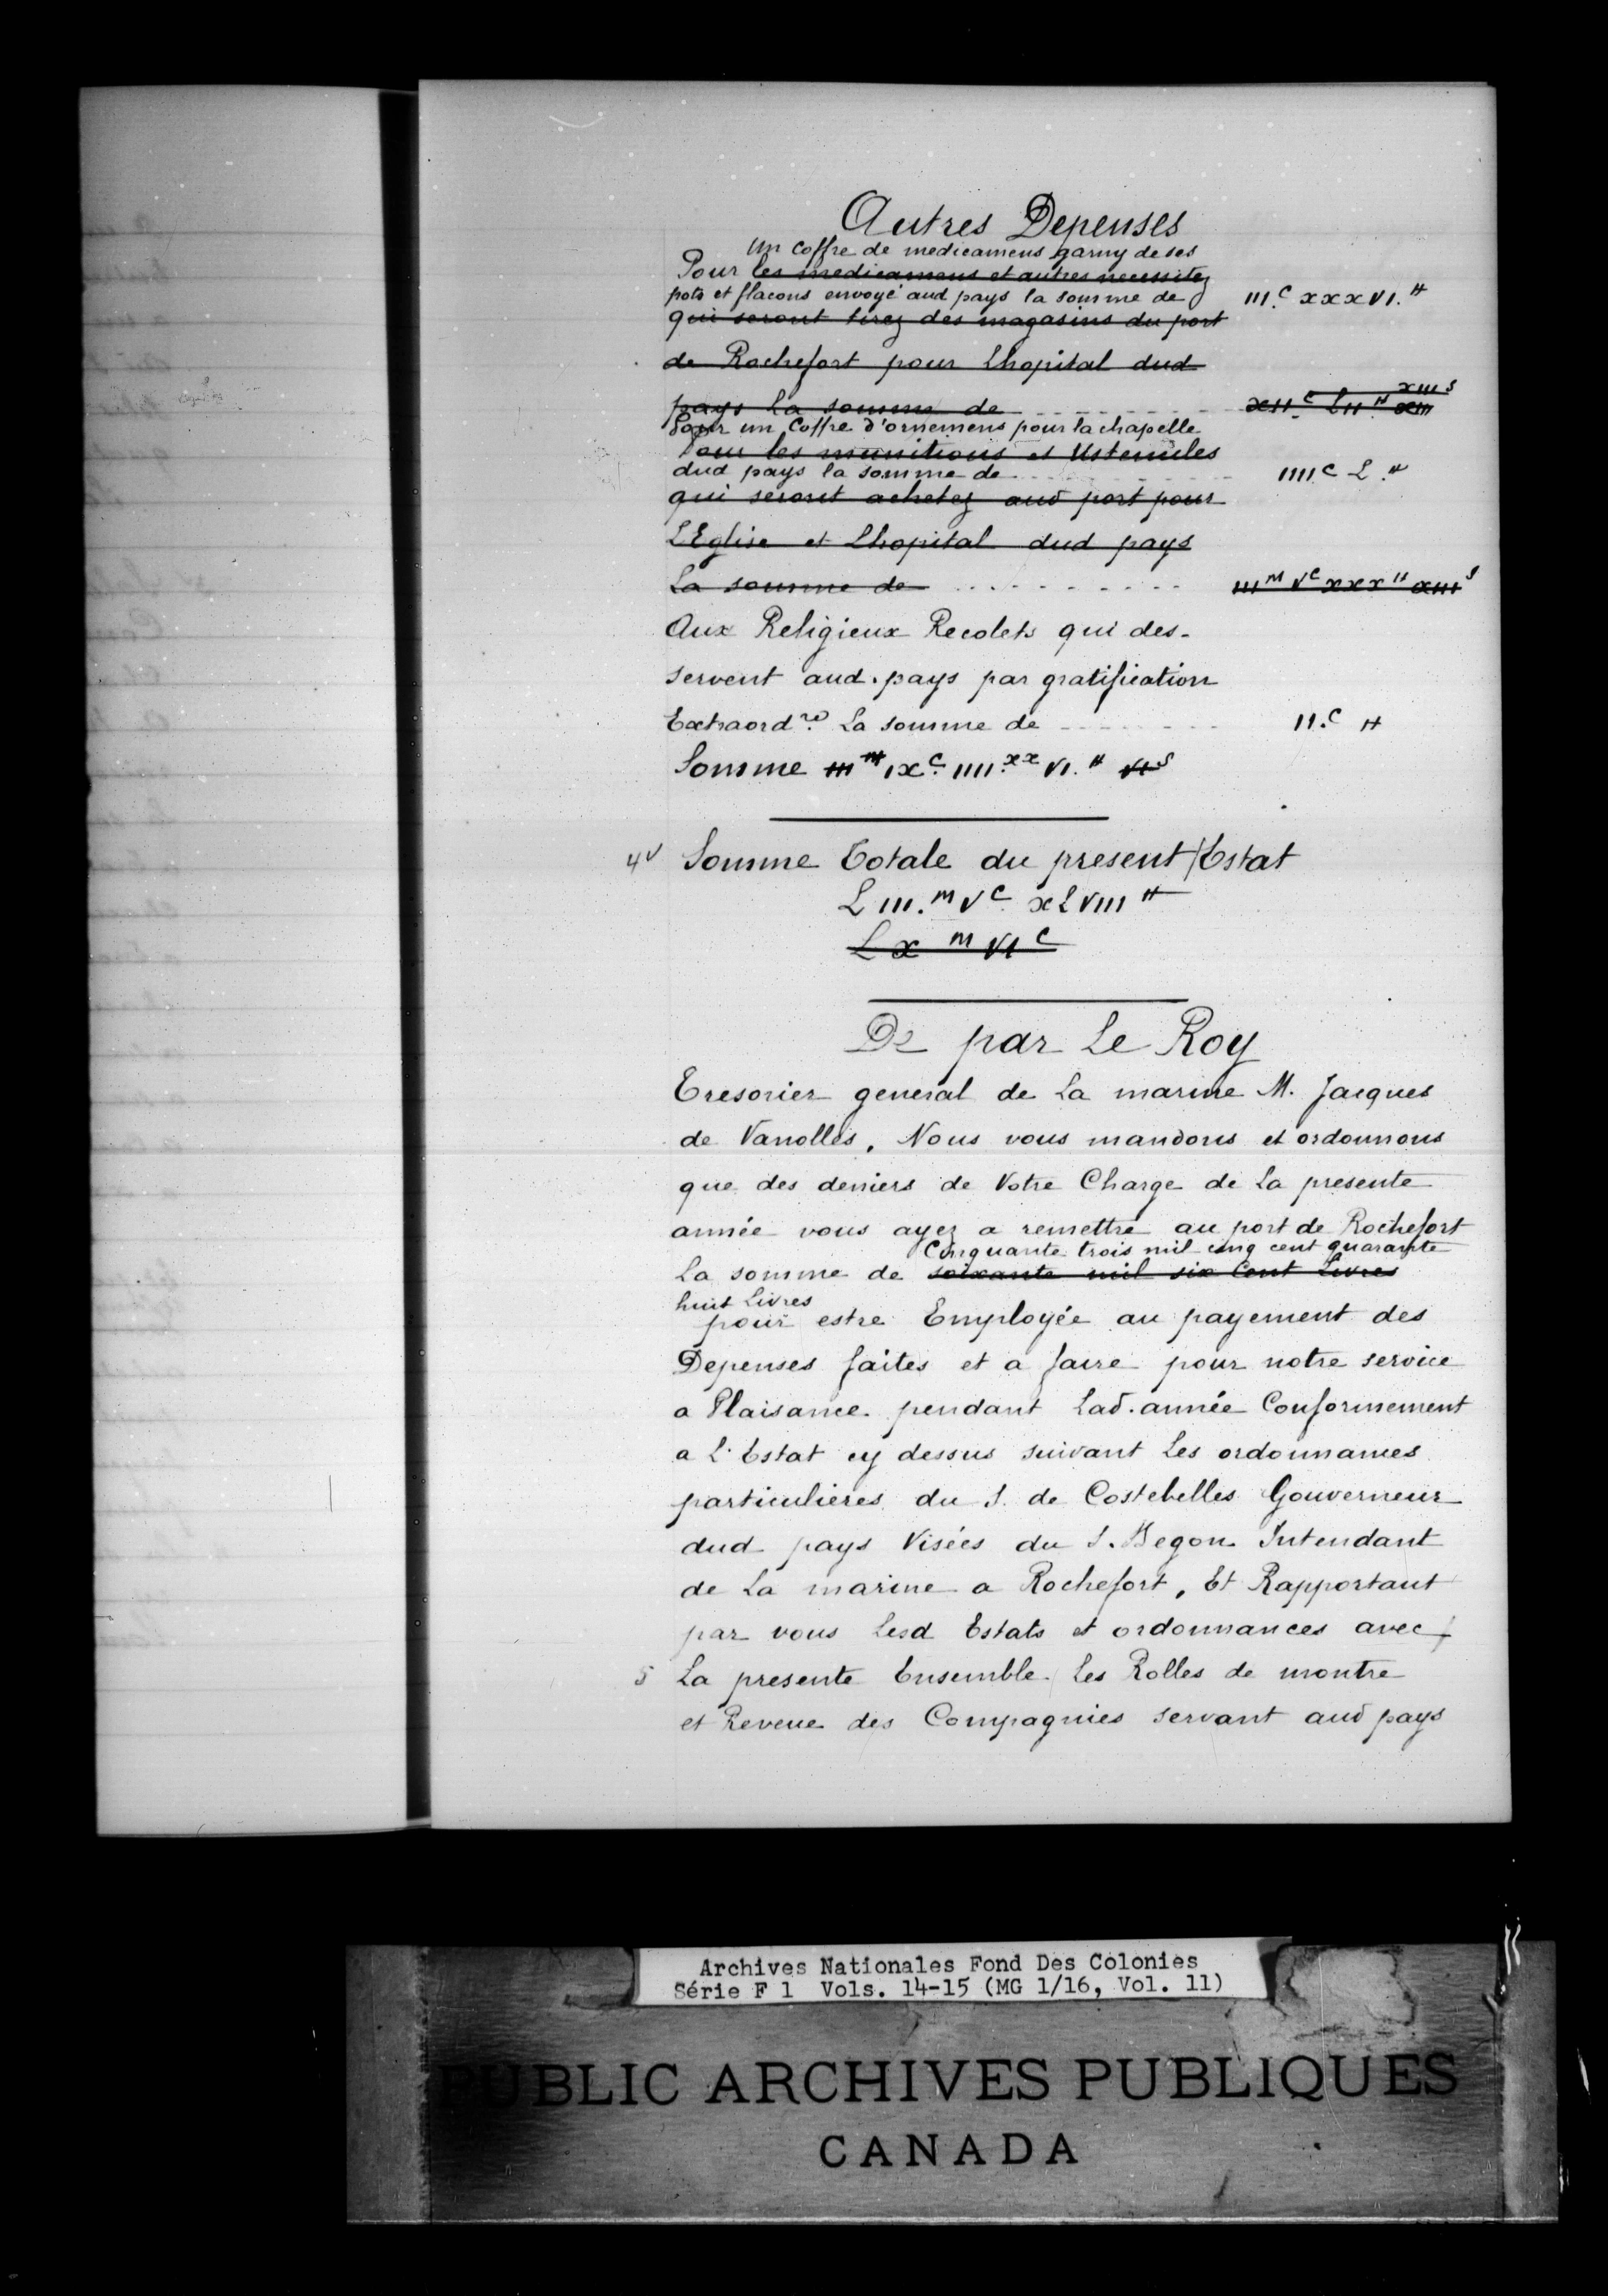 Autres Depenses
Un Coffre de medicamens garny de ses
Pour les medicamens et autres necessitez
pots et flacons envoyé aud pays la somme de III.C XXXVI.tt
qui seront tirez des magasins du port
de Rochefort pour Lhopital dud
XIII S
pays La somme de - - - - XII.C LII tt XIII
Pour un Coffre d'ornemens pour la chapelle
Pour les munitions et Ustenciles
dud pays la somme de - - - - IIII.C L.tt
qui seront achetez aud port pour
L'Eglise et Lhopital dud pays
La somme de - - - - - - III M V C XXX tt XIII S
Aux Religieux Recolets qui des-
servent aud. pays par gratification
Extraord.re La somme de - - - - II.C tt
Somme III M IX C. IIII.XX VI.tt VI S
4v Somme Totale du present/Estat
L III.M V C XLVIII tt
LX M VI C
De par Le Roy
Tresorier general de La marine M. Jacques
de Vanolles, Nous vous mandons et ordonnons
que des deniers de Votre Charge de La presente
année vous ayez a remettre au port de Rochefort
Cinquante trois mil cinq cent quarante
La somme de soixante mil six Cent Livres
huit Livres
pour estre Employée au payement des
Depenses faites et a faire pour notre service
a Plaisance pendant Lad. année Conformement
a L'Estat cy dessus suivant Les ordonnances
particulieres du S. de Costebelles Gouverneur
dud pays Visées du S. Begon Intendant
de La marine a Rochefort, Et Rapportant
par vous Lesd Estats et ordonnances avec/
5 La presente Ensemble Les Rolles de montre
et Reveue des Compagnies servant aud pays
Archives Nationales Fond Des Colonies
Série F 1 Vols. 14-15 (MG 1/16, Vol. 11)
PUBLIC ARCHIVES PUBLIQUES
CANADA